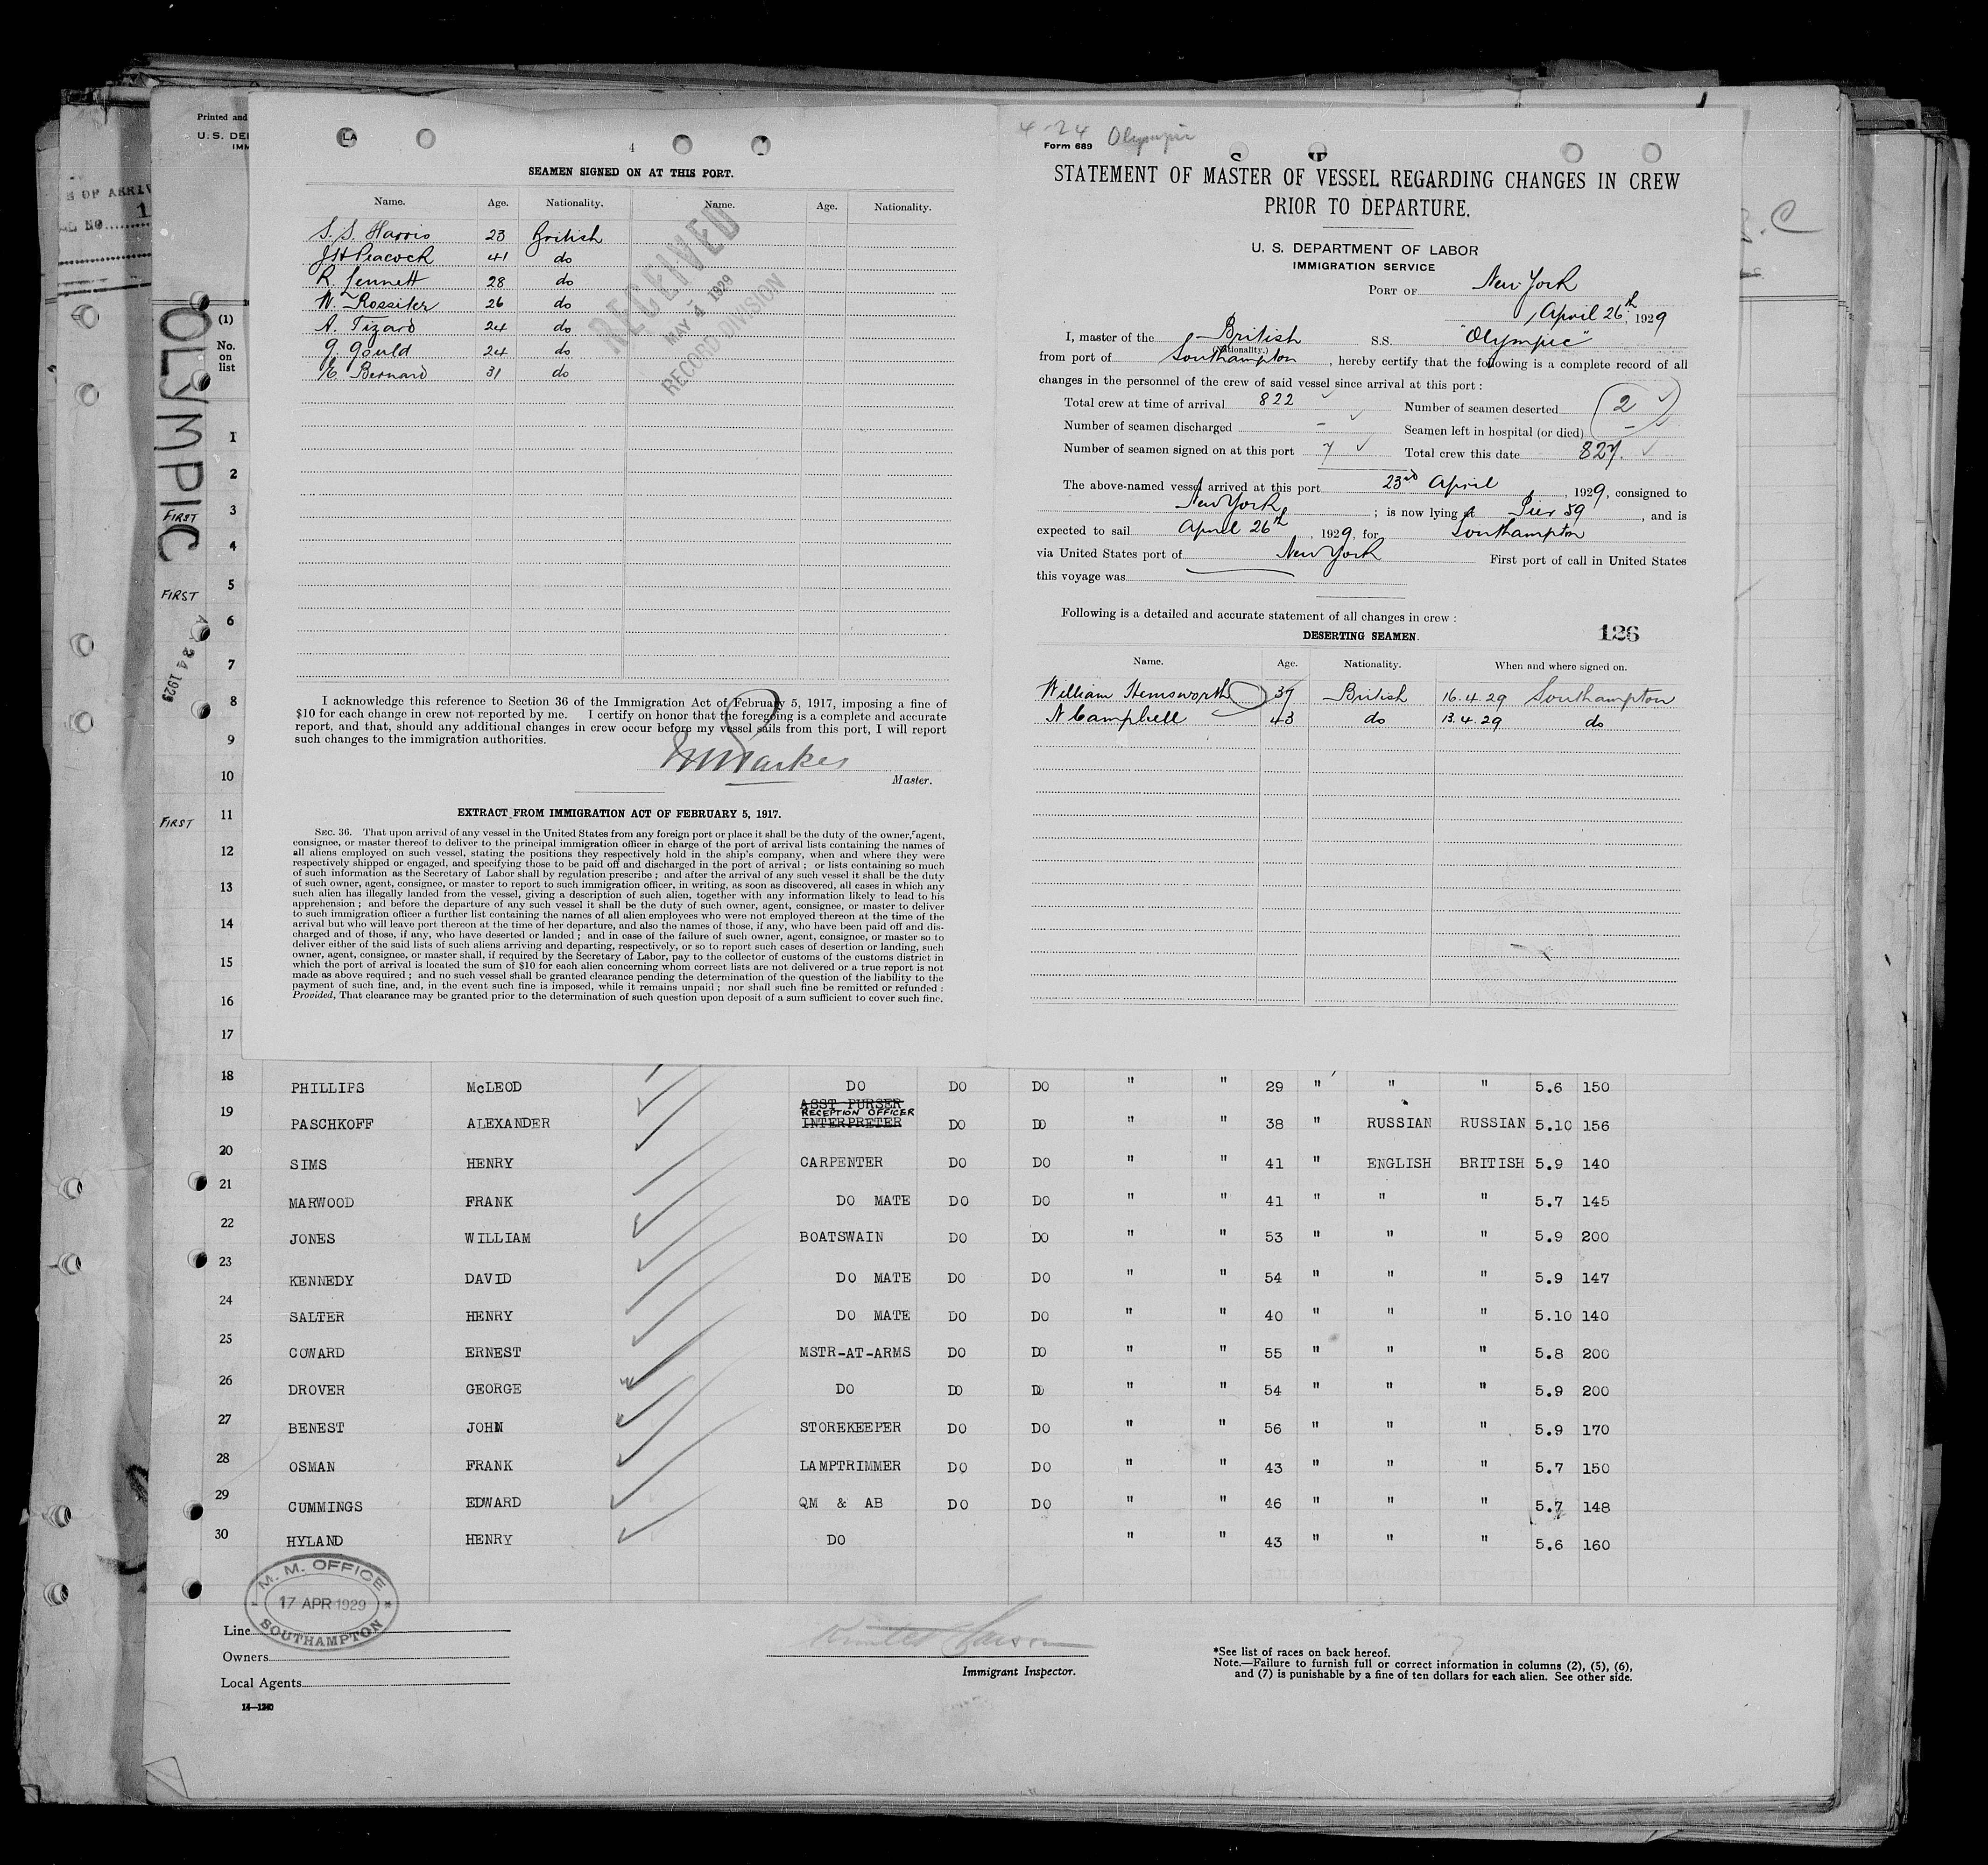 Printed and
U. S. DE
IMM
OLYMPIC
(1)
No.
on
list
LA
4
SEAMEN SIGNED ON AT THIS PORT.
Name. Age. Nationality. Name. Age. Nationality.
S. S. Harris 23 British
J H Peacock 41 do
R. Jennett 28 do
W. Rossiter 26 do
A. Tizard 24 do
G. Gould 24 do
E. Bernard 31 do
RECEIVED
MAY 4 1929
RECORD DIVISION
I acknowledge this reference to Section 36 of the Immigration Act of February 5, 1917, imposing a fine of
$10 for each change in crew not reported by me. I certify on honor that the foregoing is a complete and accurate
report, and that, should any additional changes in crew occur before my vessel sails from this port, I will report
such changes to the immigration authorities.
Master.
EXTRACT FROM IMMIGRATION ACT OF FEBRUARY 5, 1917.
SEC. 36. That upon arrival of any vessel in the United States from any foreign port or place it shall be the duty of the owner, agent,
consignee, or master thereof to deliver to the principal immigration officer in charge of the port of arrival lists containing the names of
all aliens employed on such vessel, stating the positions they respectively hold in the ship's company, when and where they were
respectively shipped or engaged, and specifying those to be paid off and discharged in the port of arrival ; or lists containing so much
of such information as the Secretary of Labor shall by regulation prescribe ; and after the arrival of any such vessel it shall be the duty
of such owner, agent, consignee, or master to report to such immigration officer, in writing, as soon as discovered, all cases in which any
such alien has illegally landed from the vessel, giving a description of such alien, together with any information likely to lead to his
apprehension ; and before the departure of any such vessel it shall be the duty of such owner, agent, consignee, or master to deliver
to such immigration officer a further list containing the names of all alien employees who were not employed thereon at the time of the
arrival but who will leave port thereon at the time of her departure, and also the names of those, if any, who have been paid off and dis-
charged and of those, if any, who have deserted or landed ; and in case of the failure of such owner, agent, consignee, or master so to
deliver either of the said lists of such aliens arriving and departing, respectively, or so to report such cases of desertion or landing, such
owner, agent, consignee, or master shall, if required by the Secretary of Labor, pay to the collector of customs of the customs district in
which the port of arrival is located the sum of $10 for each alien concerning whom correct lists are not delivered or a true report is not
made as above required ; and no such vessel shall be granted clearance pending the determination of the question of the liability to the
payment of such fine, and, in the event such fine is imposed, while it remains unpaid ; nor shall such fine be remitted or refunded :
Provided, That clearance may be granted prior to the determination of such question upon deposit of a sum sufficient to cover such fine.
4-24 Olympic
Form 689
STATEMENT OF MASTER OF VESSEL REGARDING CHANGES IN CREW
PRIOR TO DEPARTURE.
U. S. DEPARTMENT OF LABOR
IMMIGRATION SERVICE
PORT OF New York
April 26th, 1929
I, master of the British S.S. "Olympic"
(Nationality.)
from port of Southampton, hereby certify that the following is a complete record of all
changes in the personnel of the crew of said vessel since arrival at this port :
Total crew at time of arrival 822 Number of seamen deserted 2
Number of seamen discharged - Seamen left in hospital (or died) -
Number of seamen signed on at this port 7 Total crew this date 827.
The above-named vessel arrived at this port 23rd April, 1929, consigned to
New York ; is now lying at Pier 59, and is
expected to sail April 26th, 1929, for Southampton
via United States port of New York First port of call in United States
this voyage was
Following is a detailed and accurate statement of all changes in crew :
DESERTING SEAMEN. 126
Name. Age. Nationality. When and where signed on.
William Hemsworth 37 British 16.4.29 Southampton
N Campbell 43 do 13.4.29 do
1
2
FIRST 3
4
FIRST 5
6
24 1929
7
8
9
10
FIRST 11
12
13
14
15
16
17
18 PHILLIPS McLEOD DO DO DO " " 29 " " " 5.6 150
ASST PURSER
RECEPTION OFFICER
19 PASCHKOFF ALEXANDER INTERPRETER DO DO " " 38 " RUSSIAN RUSSIAN 5.10 156
20 SIMS HENRY CARPENTER DO DO " " 41 " ENGLISH BRITISH 5.9 140
21 MARWOOD FRANK DO MATE DO DO " " 41 " " " 5.7 145
22 JONES WILLIAM BOATSWAIN DO DO " " 53 " " " 5.9 200
23 KENNEDY DAVID DO MATE DO DO " " 54 " " " 5.9 147
24 SALTER HENRY DO MATE DO DO " " 40 " " " 5.10 140
25 COWARD ERNEST MSTR-AT-ARMS DO DO " " 55 " " " 5.8 200
26 DROVER GEORGE DO DO DO " " 54 " " " 5.9 200
27 BENEST JOHN STOREKEEPER DO DO " " 56 " " " 5.9 170
28 OSMAN FRANK LAMPTRIMMER DO DO " " 43 " " " 5.7 150
29 CUMMINGS EDWARD QM & AB DO DO " " 46 " " " 5.7 148
30 HYLAND HENRY DO " " 43 " " " 5.6 160
M. M. OFFICE
17 APR 1929
SOUTHAMPTON
Line
Owners
Local Agents
14—1240
Immigrant Inspector.
*See list of races on back hereof.
Note.—Failure to furnish full or correct information in columns (2), (5), (6),
and (7) is punishable by a fine of ten dollars for each alien. See other side.